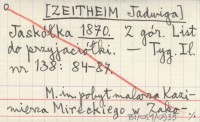 [ZEITHEIM Jadwiga]
Jaskółka 1870. Z gór. List
do przyjaciółki. — Tyg. Il.
nr 138: 84-87.
M.in. pobyt malarza Kazi-
mierza Mireckiego w Zako-